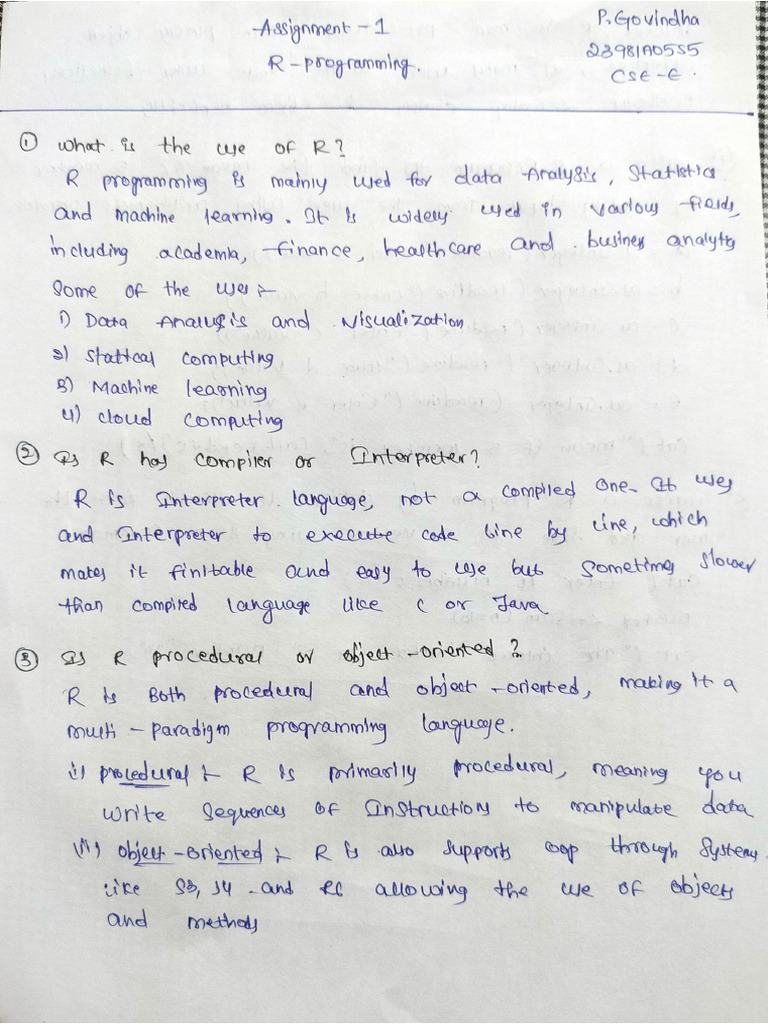 Assignment - 1
R - programming.
P. Govindha
23981A05S5
CSE - E.
① What is the use of R?
R programming is mainly used for data Analysis, Statistics
and machine learning. It is widely used in various fields,
including academia, finance, healthcare and business analytics
Some of the uses :-
1) Data Analysis and Visualization
2) Stattical computing
3) Machine learning
4) Cloud computing
② Is R has compiler or Interpreter?
R is Interpreter language, not a compiled one. It uses
and Interpreter to execute code line by line, which
makes it finitable and easy to use but sometimes slower
than compired language like C or Java
③ Is R procedural or object - oriented?
R is Both procedural and object - oriented, making it a
multi - paradigm programming language.
i) procedural :- R is primarily procedural, meaning you
write sequences of Instructions to manipulate data
(ii) object - oriented :- R is also supports oop through systems
like S3, S4 and RC allowing the use of objects
and methods